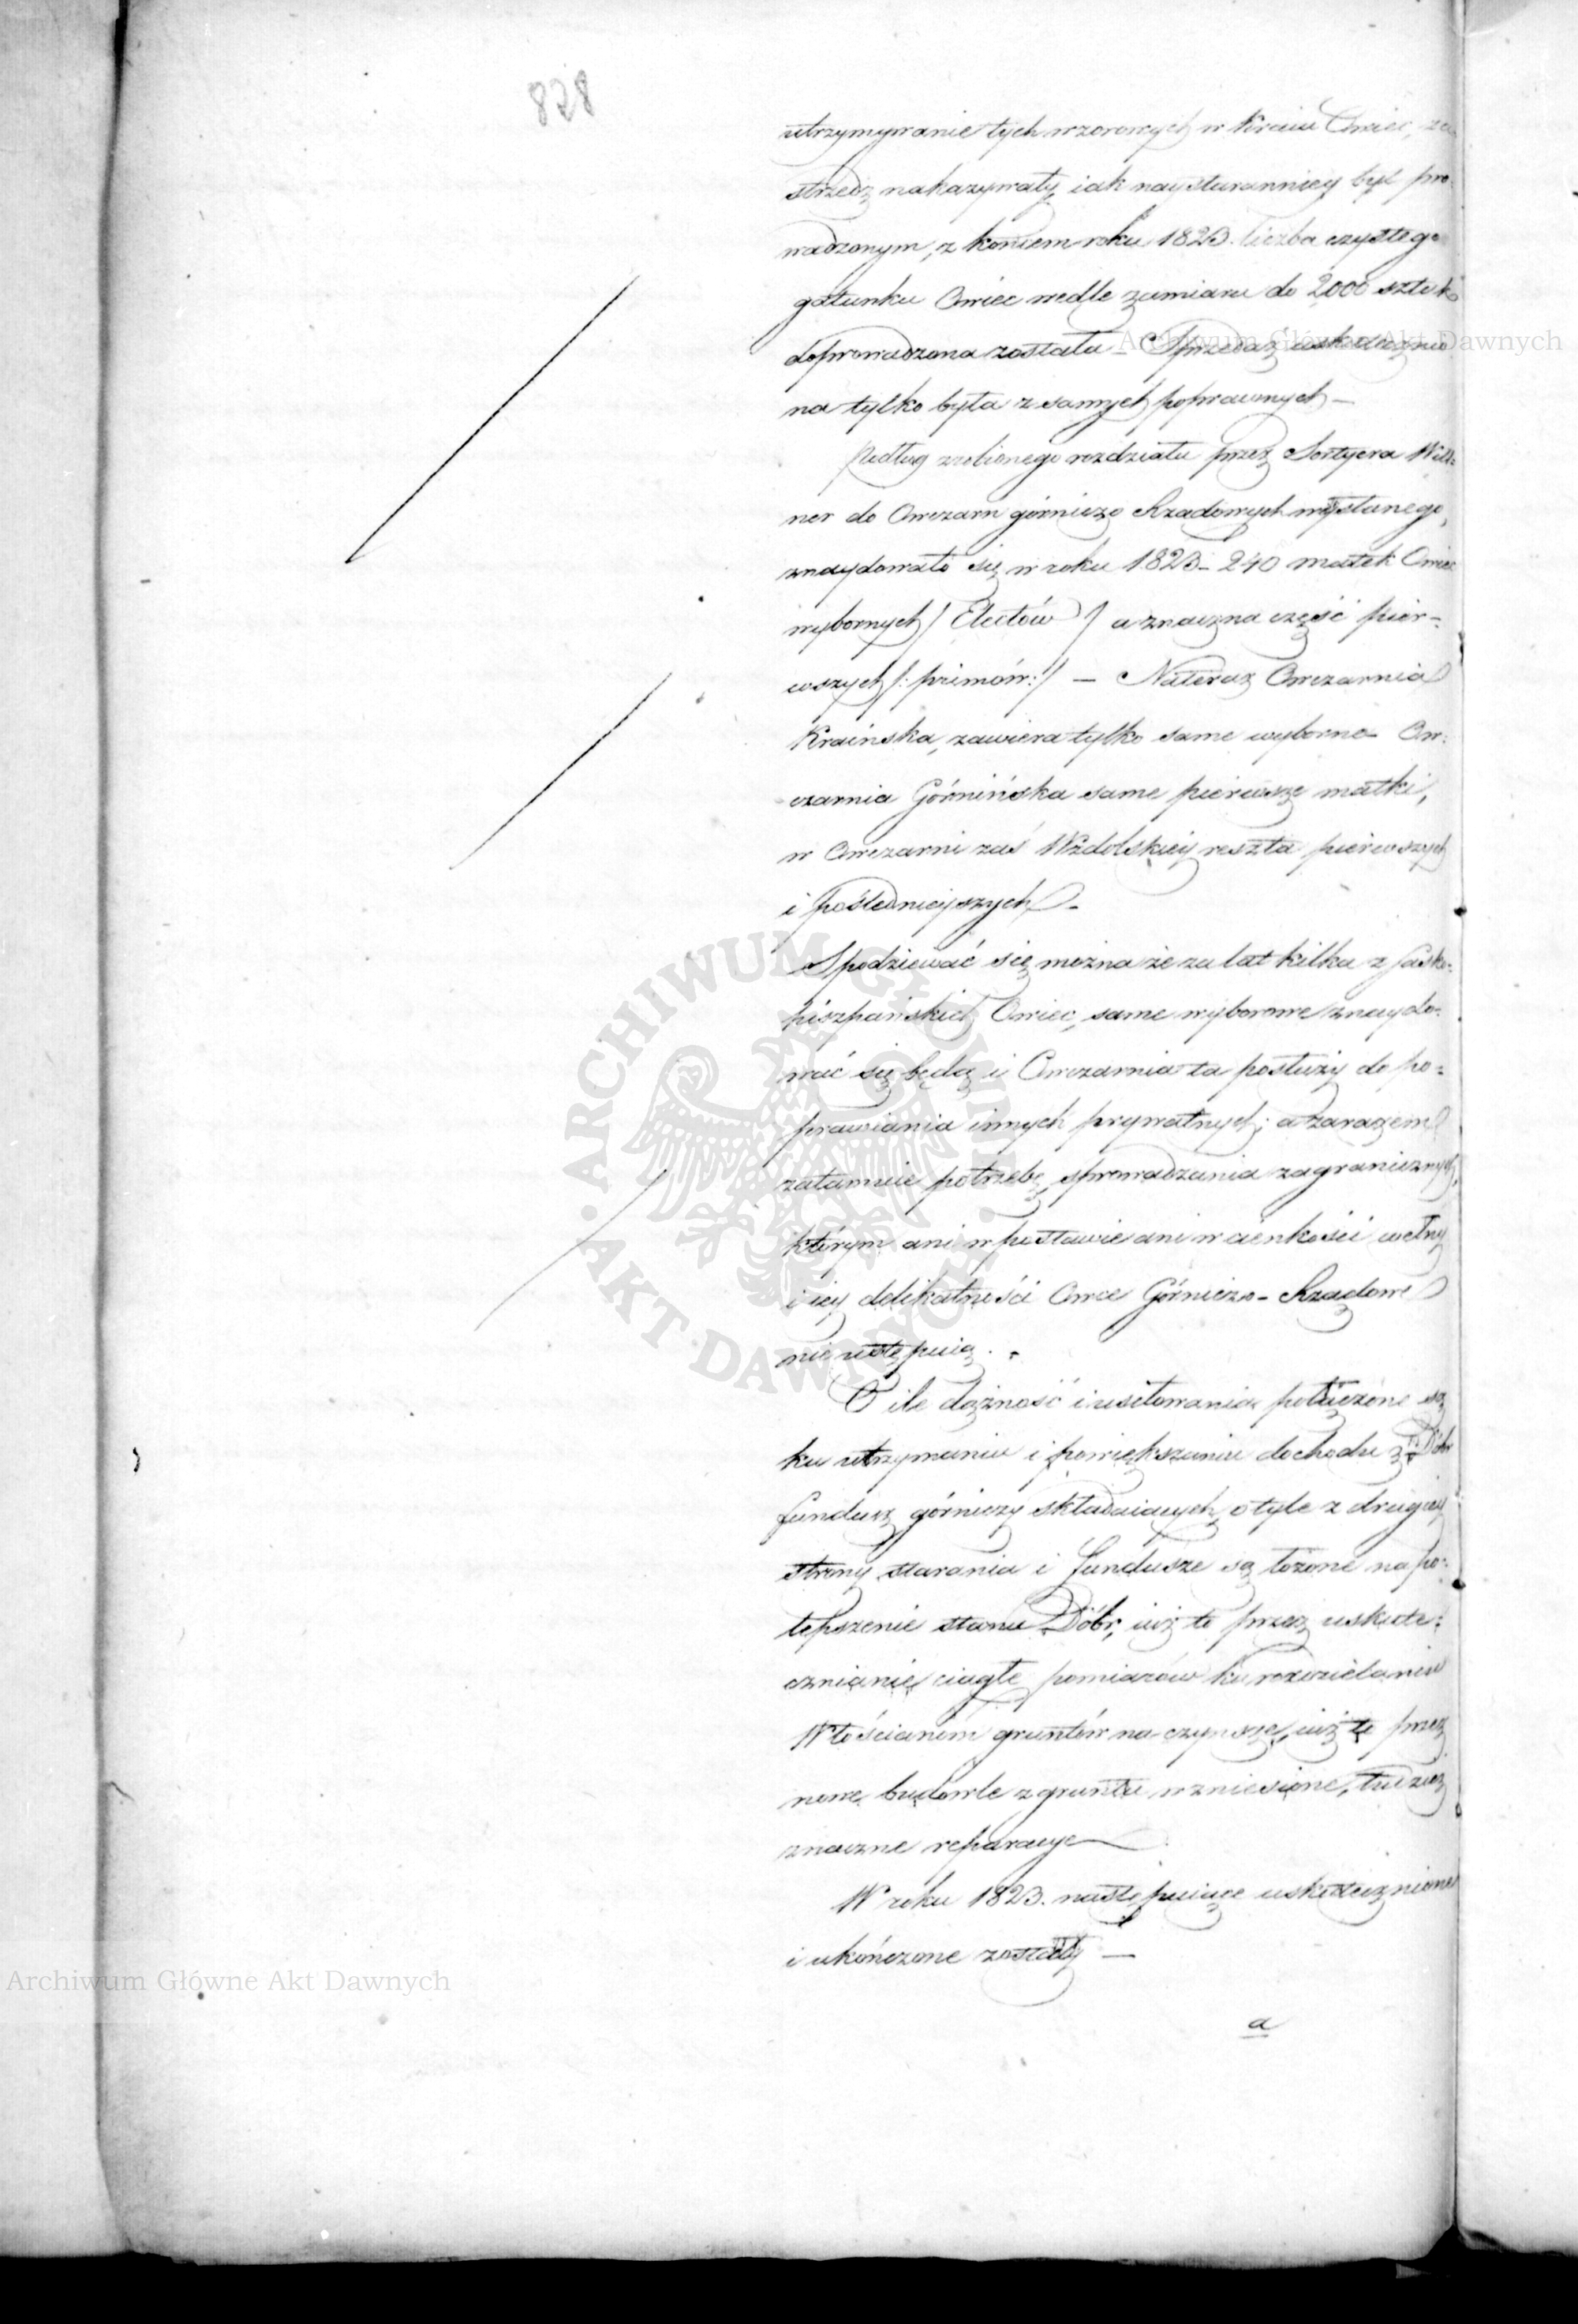 828
utrzymywanie tych wzorowych w Kraiu Owiec, za
strzedz nakazywały, iak naystaranniey był pro-
wadzonym, z końcem roku 1823. liczba czystego
gatunku Owiec wedle zamiaru do 2000 sztuk
doprowadzona została – Sprzedaż uskutecznio
na tylko była z samych poprawnych –
Podług zrobionego rozdziału przez Sortyera
ner do Owczarn górniczo Rządowych wysłanego,
znaydowało się w roku 1823 – 240 matek Owiec
wybornych / Electów / a znaczna część pier-
wszych /: primów :/ – Nateraz Owczarnia
Kraińska, zawiera tylko same wyborne – Ow:
czarnia Górnińska same pierwsze matki,
w Owczarni zaś Wzdolskiey reszta pierwszych
i pośledniejszych –
Spodziewać się można że za lat kilka z Sasko-
hiszpańskich Owiec, same wyborowe znaydo-
wać się będą i Owczarnia ta posłuży do po-
prawiania innych prywatnych; a zarazem
załamuie potrzebę sprowadzania zagranicznych,
którym ani w postawie ani w cienkości wełny
i iey delikatności Owce Górniczo – Rządowe
nie ustępuią.
O ile dążność i usiłowania połączone są
ku utrzymaniu i powiększaniu dochodu z Dóbr
fundusz górniczy składaiących, o tyle z drugiey
strony starania i fundusze są łożone na po-
lepszenie stanu Dóbr, iuż to przez uskute-
cznianie ciągłe pomiarów ku rozdzielaniu
Włościanom gruntów na czynsze, iuż to przez
nowe budowle z gruntu wzniesione, tudzież
znaczne reparacye
W roku 1823. następuiące uskutecznione
i ukończone zostały –
a
Archiwum Główne Akt Dawnych
Archiwum Główne Akt Dawnych
ARCHIWUM GŁÓWNE AKT DAWNYCH